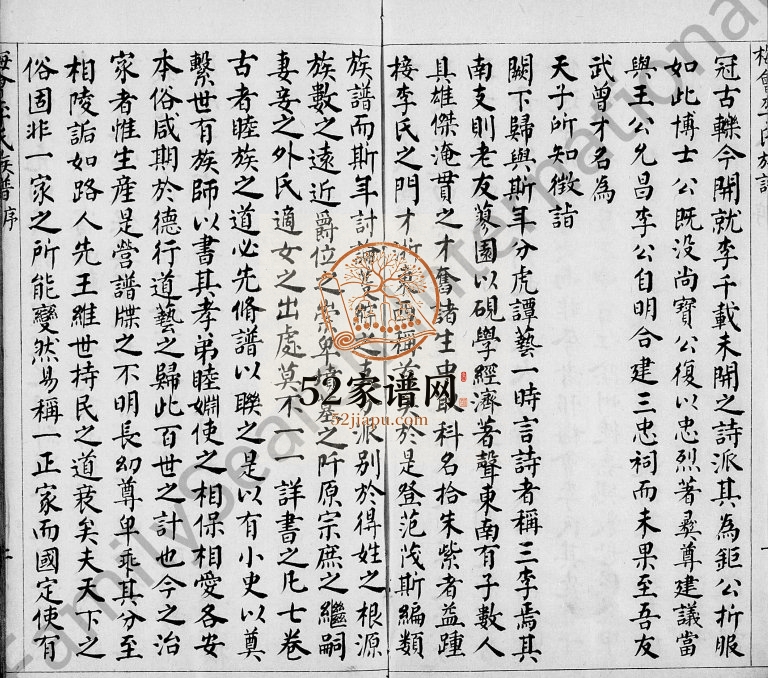 梅會李氏族譜
冠古轢今開就李千載未開之詩派其為鉅公折服
如此博士公既没尚寶公復以忠烈著彛尊建議當
與王公允昌李公自明合建三忠祠而未果至吾友
武曾才名為
天子所知徵詣
闕下歸與斯年分虎譚藝一時言詩者稱三李焉其
南支則老友蓼園以硯學經濟著聲東南有子數人
具雄傑淹貫之才奪諸生中取科名拾朱紫者益踵
接李氏之門才浙東西稱首於是登范茂斯編類
族譜而斯年討之支分派别於得姓之根源
族數之遠近爵位之崇卑墳墓之阡原宗庶之繼嗣
妻妾之外氏適女之出處莫不一一詳書之凡七卷
古者睦族之道必先脩譜以聨之是以有小史以奠
繫世有族師以書其孝弟睦婣使之相保相愛各安
本俗咸期於德行道藝之歸此百世之計也今之治
家者惟生産是營譜牒之不明長幼尊卑乖其分至
相陵詬如路人先王維世持民之道衰矣夫天下之
俗固非一家之所能變然易稱一正家而國定使有
梅會李氏族譜序
52家谱网
52jiapu.com
FamilySearch International